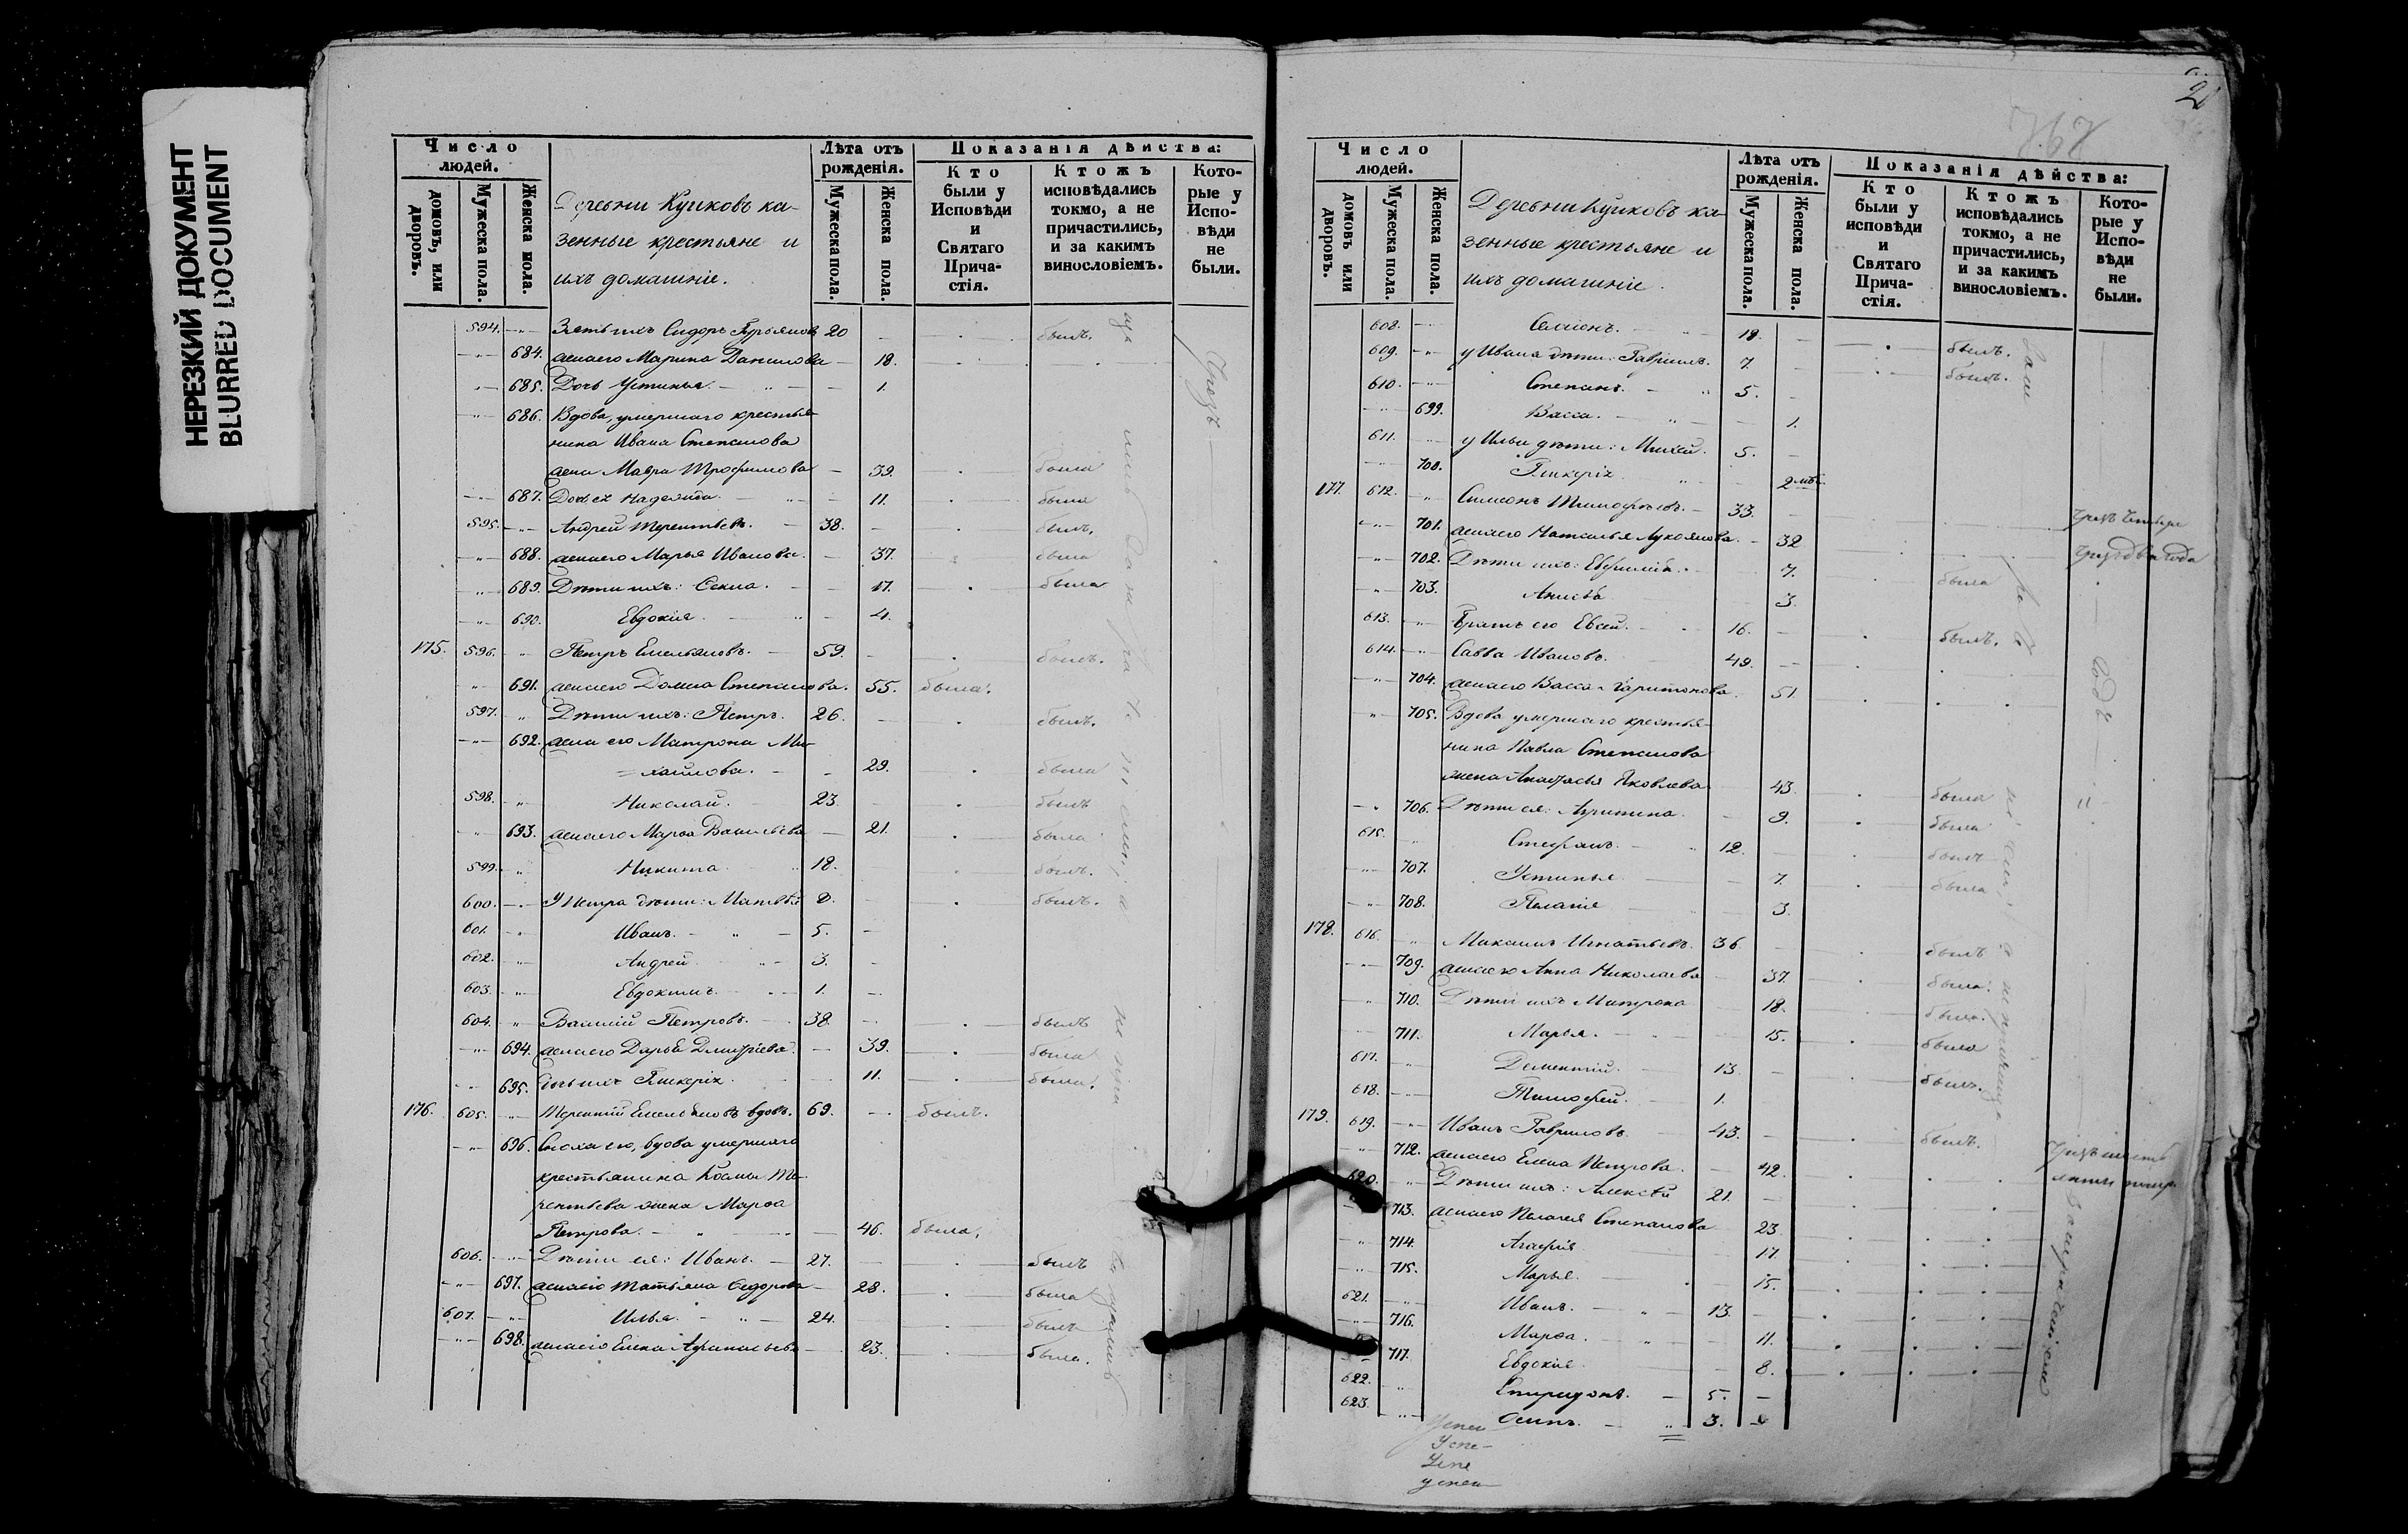 НЕРЕЗКИЙ ДОКУМЕНТ
BLURRED DOCUMENT
Число людей.
домовъ, или дворовъ.
Мужеска пола.
Женска пола.
Деревни Кучковъ ка-
зенные крестьяне и
ихъ домашніе.
Лѣта отъ рожденія.
Мужеска пола.
Женска пола.
Показанія дѣйства:
Кто были у Исповѣди и Святаго Прича-стія.
Ктожъ исповѣдались токмо, а не причастились, и за какимъ винословіемъ.
Кото-рые у Испо-вѣди не были.
594. Зять ихъ Сидоръ Гурьяновъ 20 былъ.
684. жена его Марина Данилова 18.
685. Дочь Устинья. 1.
686. Вдова, умершаго крестья-
нина Ивана Степанова
жена Мавра Трофимова 39. была
687. Дочь ея Надежда. 11. была
595. Андрей Терентьевъ. 38. былъ.
688. жена его Марья Иванова. 37. была
689. Дѣти ихъ: Секла. 17. была
690. Евдокія. 4.
175. 596. Петръ Емельяновъ. 59. былъ.
691. жена его Домна Степанова. 55. была.
597. Дѣти ихъ: Петръ. 26. былъ.
692. жена его Матрона Ми-
=хайлова. 29. была
598. Николай. 23. былъ
693. жена его Марѳа Васильева 21. была
599. Никита 18. былъ.
600. У Петра дѣти: Матвѣй 8. былъ.
601. Иванъ. 5.
602. Андрей 3.
603. Евдокимъ. 1.
604. Василій Петровъ. 38. былъ
694. жена его Дарья Дмитріева. 39. была
695. Дочь ихъ Гликерія. 11. была.
176. 605. Терентій Емельяновъ вдовъ. 69. былъ.
696. Сноха его, вдова умершаго
крестьянина Козмы Те-
рентьева жена Марѳа
Петрова. 46. была.
606. Дѣти ея: Иванъ. 27. былъ
697. жена его Татьяна Ѳедорова 28. была
607. Илья. 24. былъ
698. жена его Елена Афанасьева 23. была.
Число людей.
домовъ или дворовъ.
Мужеска пола.
Женска пола.
Деревни Кучковъ ка-
зенные крестьяне и
ихъ домашніе.
Лѣта отъ рожденія.
Мужеска пола.
Женска пола.
Показанія дѣйства:
Кто были у исповѣди и Святаго Прича-стія.
Ктожъ исповѣдались токмо, а не причастились, и за какимъ винословіемъ.
Кото-рые у Испо-вѣди не были.
608. Симіонъ. 18. былъ.
609. у Ивана дѣти: Гавріилъ. 7. былъ.
610. Степанъ. 5.
699. Васса. 1.
611. у Ильи дѣти: Михей. 5.
700. Гликерія 2
177. 612. Симеонъ Тимофѣевъ. 33.
701. жена его Наталья Лукоянова. 32
702. Дѣти ихъ: Евфимія. 7. была
703. Анисья 3.
613. Братъ его Евсей. 16. былъ.
614. Савва Ивановъ. 49.
704. жена его Васса Харитонова. 51.
705. Вдова умершаго крестья-
нина Павла Степанова
жена Анастасья Яковлева 43. была
706. Дѣти ея: Агрипина. 9. была
615. Стефанъ. 12. былъ
707. Устинья 7. была
708. Пелагія 3.
178. 616. Максимъ Игнатьевъ. 36. былъ
709. жена его Анна Николаева 37. была.
710. Дѣти ихъ Матрона 18. была.
711. Марья. 15. была
617. Дементій. 13. былъ.
618. Тимофей. 1.
179. 619. Иванъ Гавриловъ. 43. былъ.
712. жена его Елена Петрова. 42.
620. Дѣти ихъ: Алексѣй 21.
713. жена его Пелагея Степанова 23
714. Агафія 17.
715. Марья. 15.
621. Иванъ. 13.
716. Марѳа. 11.
717. Евдокія. 8.
622. Спиридонъ. 5.
623. Осипъ. 3.